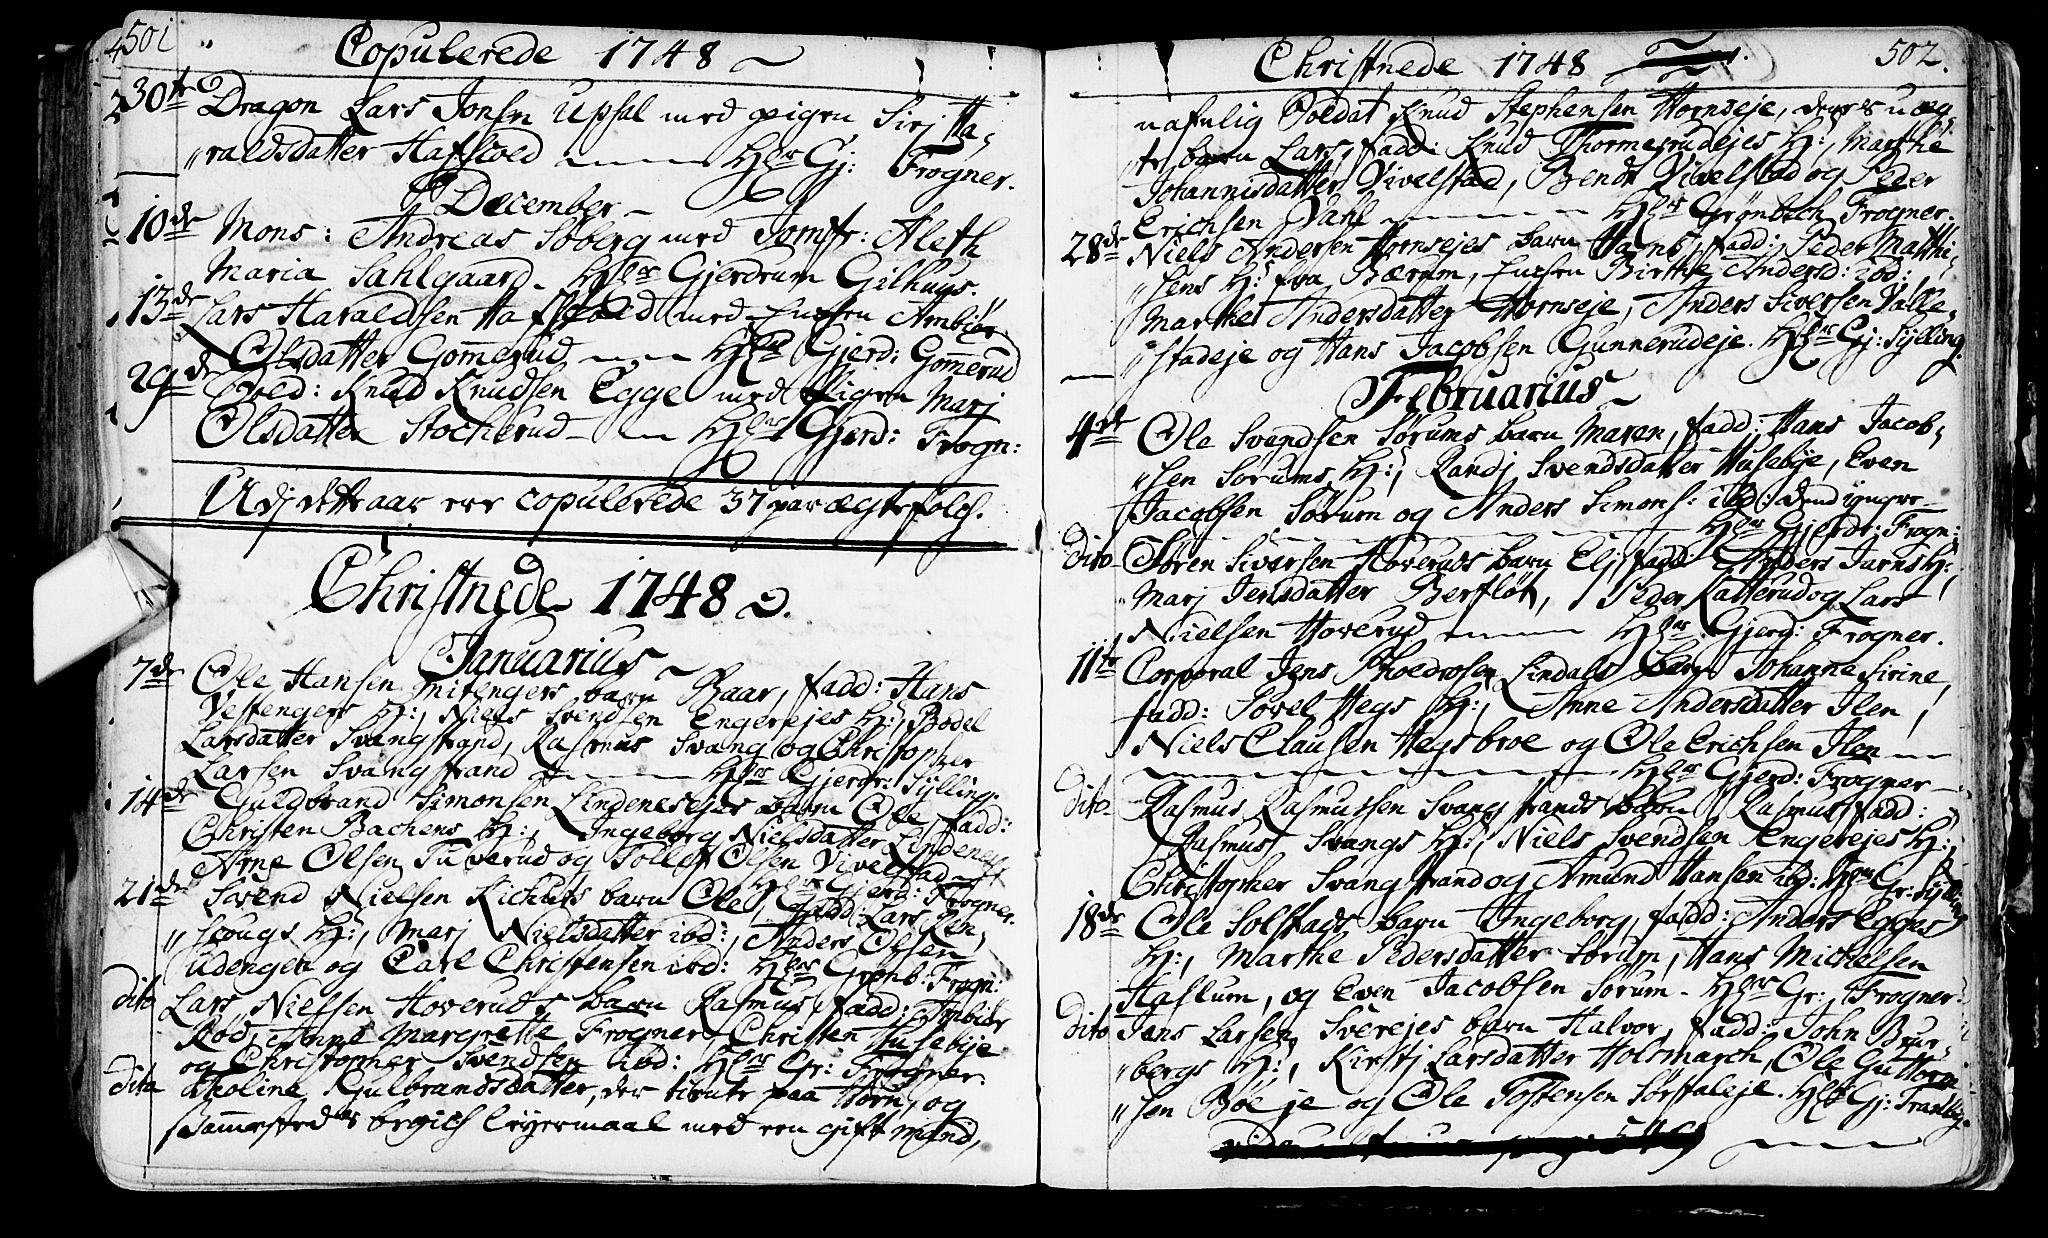 501
Copulerede 1748
30te Dragon Lars Jonsen Upsal med pigen Sirj Ha,
„raldsdatter Hafscold Hr Gj: Frogner.
December
10de Mons: Andreas Soberg med Jomfr: Aleth
Maria Sahlgaard Gjerdrum Gilhuus.
13de Lars Haraldsen Hafscold med Enchen Ambiør
Olsdatter Gomerud Gjerd: Gomerud
29de Sold: Knud Knudsen Egge med Pigen Marj
Olsdatter Stocherud Gjerd: Frogn:
Udj dette aar ere copulerede 37 par ægtefolch.
Christnede 1748
Januarius
7de Ole Hansen Mitengers barn Baar, fadd: Hans
Vestengers H:, Niels Svendsen Engerejes H:, Bodel
Larsdatter Svangstrand, Rasmus Svang og Christopher
Larsen Svangstrand Gjerdr: Sylling.
14de Guldbrand Simonsen Lindenesejes barn Ole, fadd:
Christen Bachens H:, Ingeborg Nielsdatter Lindenes,
Arne Olsen Tuverud og Tollef Olsen Vivelstad
Gjerd: Frogner.
21de Svend Nielsen Kichuts barn Ole, fadd: Lars Ren,
„scougs H:, Marj Nielsdatter ibd:, Anders Olsen
Udengen og Carl Christensen ibd: Grønb: Frogn:
dito Lars Nielsen Hoveruds barn Rasmus, fadd: Ambiør
Rød, Anne Margrethe Frogner, Christen Husebije
og Christopher Svendsen ibd: Gr: Frogner.
dito Tholine Gulbrandsdatter, der tiente paa Horn, og
sammesteds begich leyermaal med een gift Mand,
502.
Christnede 1748
nafnlig Soldat Knud Stephensen Hornseje, deres uæg,
„te barn Lars, fadd: Knud Thormerudejes H:, Marthe
Johannisdatter Vivelstad, Bendt Vivelstad og Peder
Erichsen Dahl Grønbech Frogner.
28de Niels Andersen Hornsejes barn Hans, fadd: Peder Matthi,
„sens H: fra Bærum, Enchen Birthe Andersd: ibd:,
Marthe Andersdatter Hornseje, Anders Siversen Valle,
„stadeje og Hans Jacobsen Gunnerudeje. Gj: Sylling.
Februarius
4de Ole Svendsen Sørums barn Maren, fadd: Hans Jacob,
„sen Sørums H:, Randj Svendsdatter Husebije, Even
Jacobsen Sørum og Anders Simons: ibd: dend yngre
Gjerdr: Frogn:
dito Søren Siversen Hoveruds barn Elj, fadd: Anders Juruns H:,
Marj Jensdatter Berfløt, Peder Katterud og Lars
Nielsen Hoverud Gjerd: Frogner.
11te Corporal Jens Lindals barn Johanna Sirine,
fadd: Sovel Hegs H:, Anne Andersdatter Ilen,
Niels Clausen Hegsbroe og Ole Erichsen Ilen
Gjerd: Frogner
dito Rasmus Rasmussen Svangstrands barn Rasmus, fadd:
Rasmus Svangs H:, Niels Svendsen Engerejes H:,
Christopher Svangstrand og Amund Hansen ibd: Gr: Sylling
18de Ole Solstads barn Ingeborg, fadd: Anders Egges
H:, Marthe Pedersdatter Sørum, Hans Michelsen
Haslum, og Even Jacobsen Sørum Gr: Frogner.
dito Jens Larsen Sverejes barn Halvor, fadd: John Buur,
„bergs H:, Kirstj Larsdatter Holsmarch, Ole Guttorm,
„sen Bøeje og Ole Tostensen Sørsdaleje. Gj: Trandby.